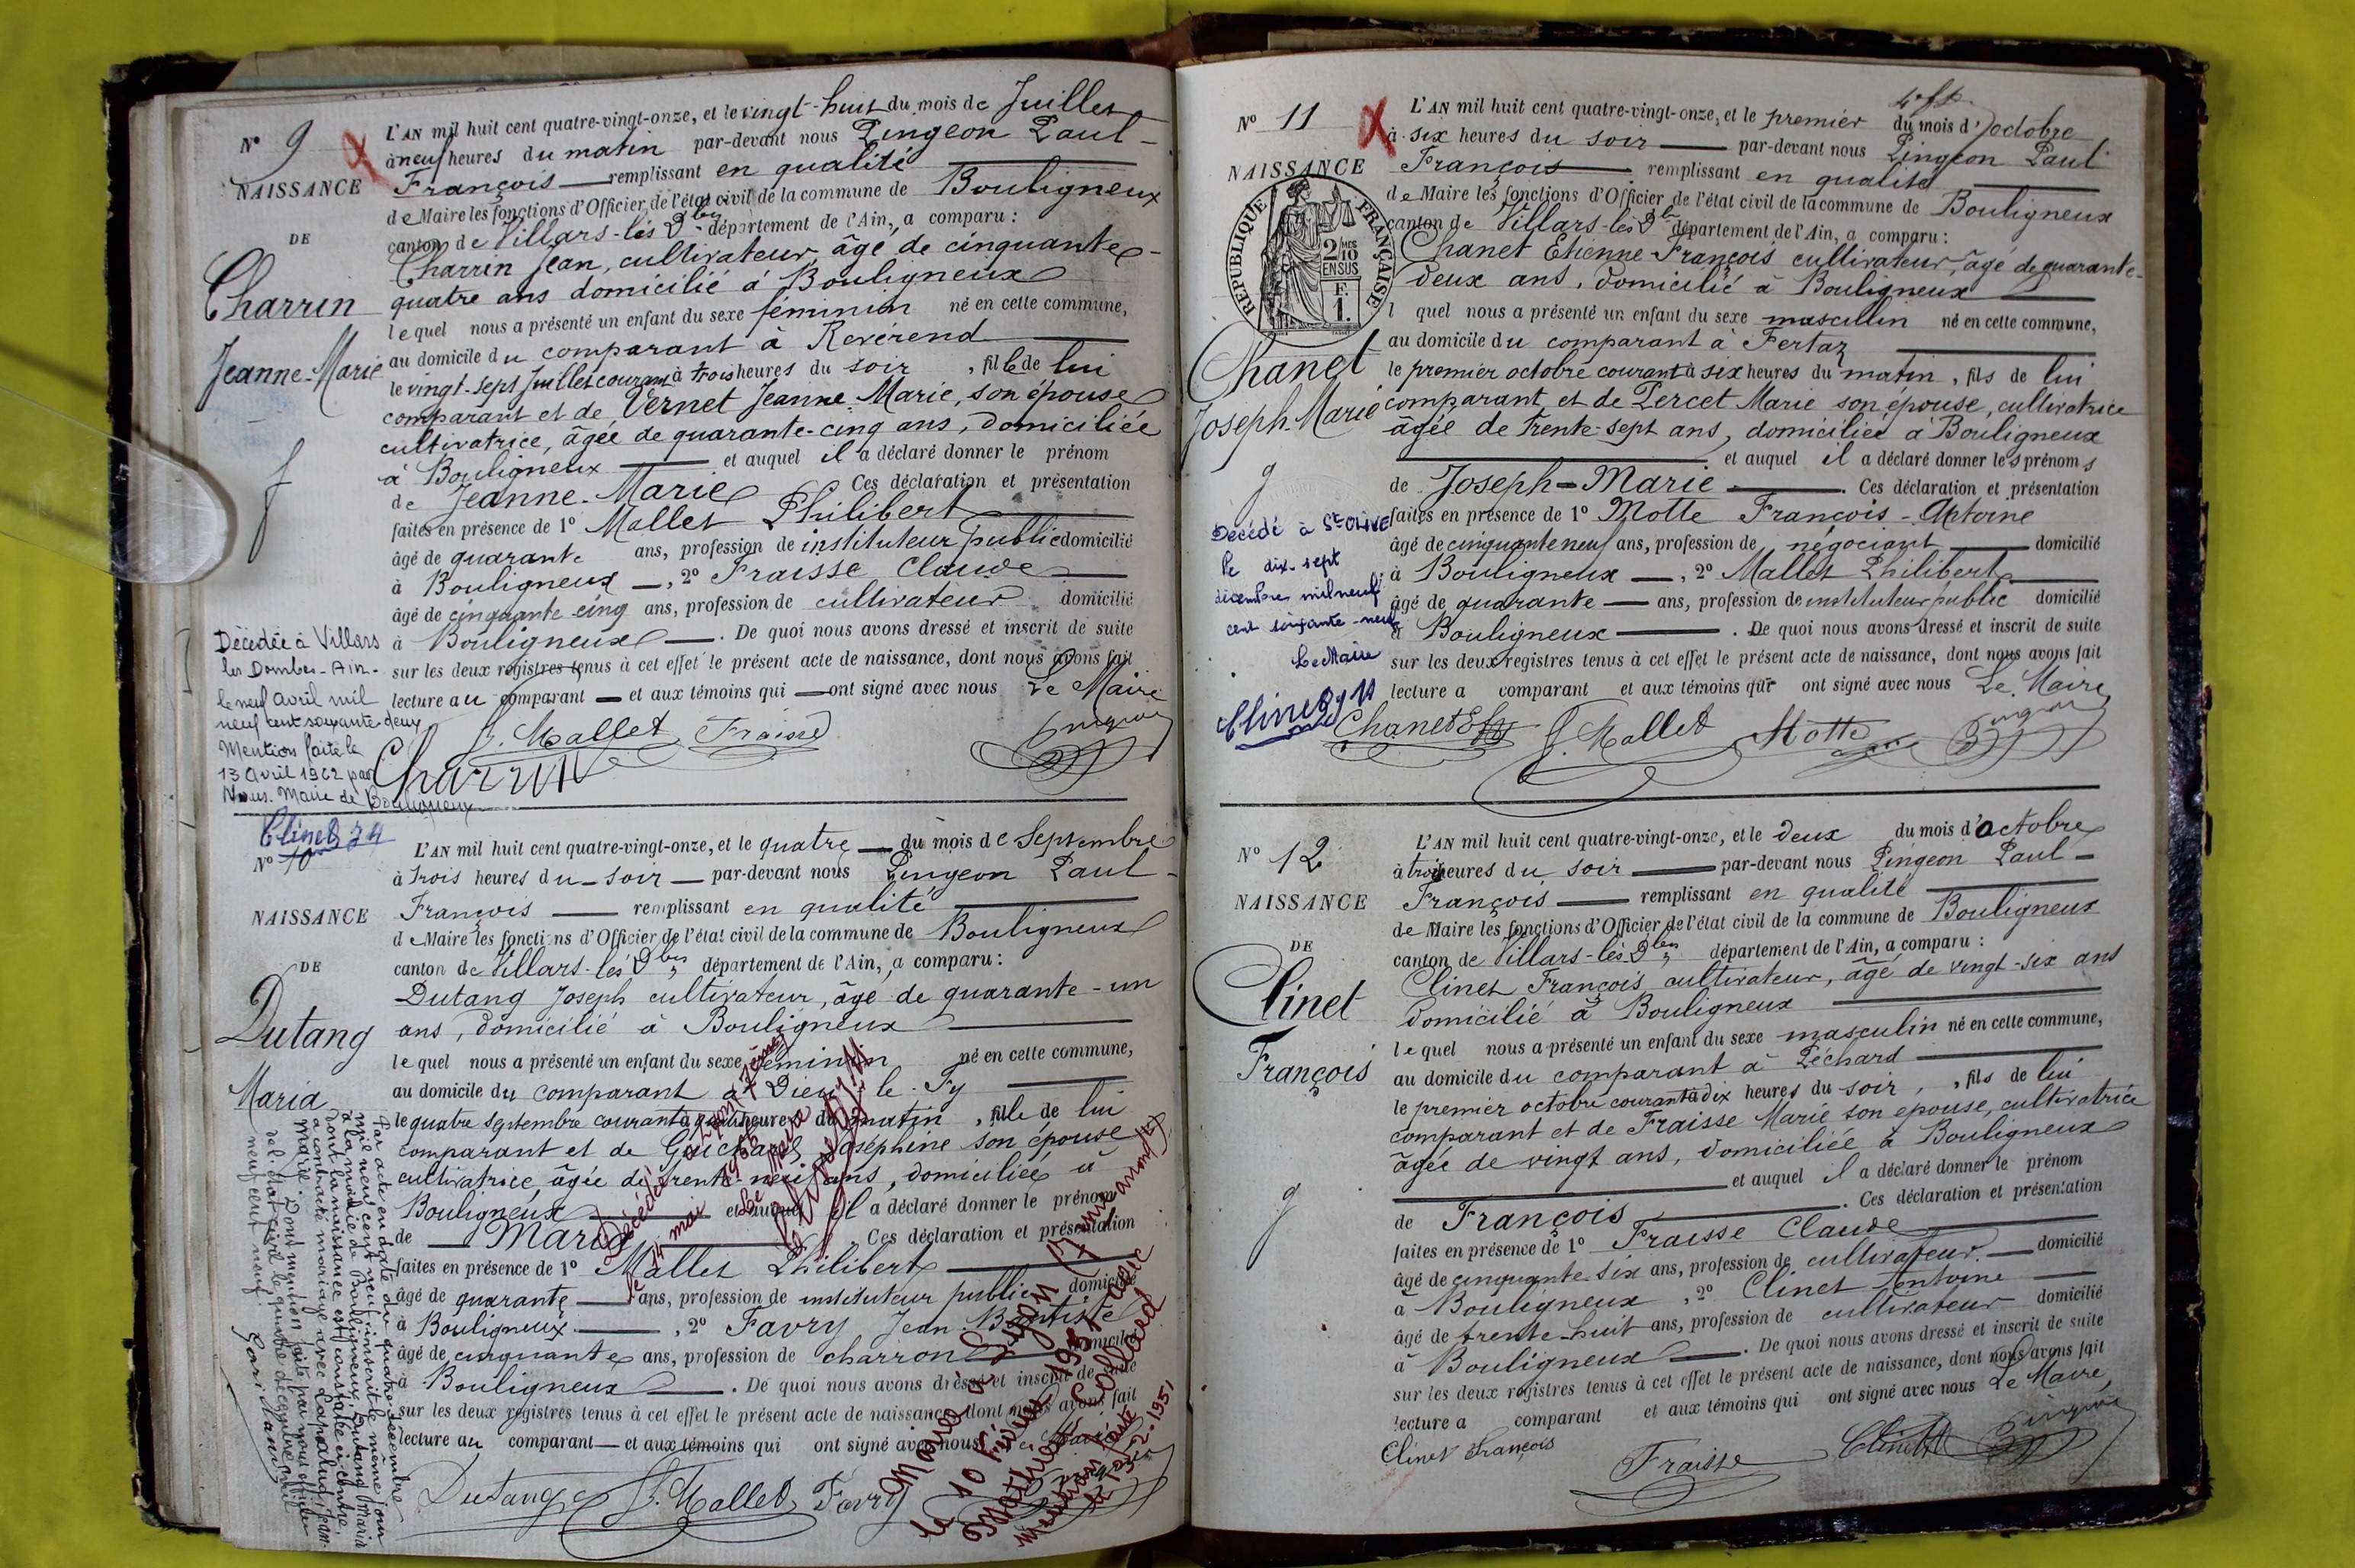 N° 9
NAISSANCE
DE
Charrin
Jeanne-Marie
f
L'AN mil huit cent quatre-vingt-onze, et le vingt-huit du mois de Juillet
à neuf heures du matin par-devant nous Pingeon Paul-
François remplissant en qualité
de Maire les fonctions d'Officier de l'état civil de la commune de Bouligneux
canton de Villars-lès-Dbes département de l'Ain, a comparu :
Charrin Jean, cultivateur, âgé de cinquante-
quatre ans domicilié à Bouligneux
lequel nous a présenté un enfant du sexe féminin né en cette commune,
au domicile du comparant à Révérend
le vingt-sept Juillet courant à trois heures du soir, fille de lui
comparant et de Vernet Jeanne-Marie, son épouse
cultivatrice, âgée de quarante-cinq ans, domiciliée
à Bouligneux et auquel il a déclaré donner le prénom
de Jeanne-Marie Ces déclaration et présentation
faites en présence de 1° Mallet Philibert
âgé de quarante ans, profession de instituteur public domicilié
à Bouligneux, 2° Fraisse Claude
âgé de cinquante-cinq ans, profession de cultivateur domicilié
à Bouligneux. De quoi nous avons dressé et inscrit de suite
sur les deux registres tenus à cet effet le présent acte de naissance, dont nous avons fait
lecture au comparant et aux témoins qui ont signé avec nous Le Maire
P. Mallet Fraisse Pingeon
Charrin
Décédée à Villars
les Dombes-Ain-
le neuf Avril mil
neuf cent soixante deux
Mention faite le
13 Avril 1962 par
Nous. Maire de Bouligneux
Clinet
N° 10
NAISSANCE
DE
Dutang
Maria
L'AN mil huit cent quatre-vingt-onze, et le quatre du mois de Septembre
à trois heures du soir par-devant nous Pingeon Paul-
François remplissant en qualité
de Maire les fonctions d'Officier de l'état civil de la commune de Bouligneux
canton de Villars-lès-Dbes département de l'Ain, a comparu :
Dutang Joseph cultivateur, âgé de quarante-un
ans, domicilié à Bouligneux
lequel nous a présenté un enfant du sexe féminin né en cette commune,
au domicile du comparant à Dieu le Fy
le quatre septembre courant à heures du matin, fille de lui
comparant et de Guichard Joséphine son épouse
cultivatrice, âgée de trente-neuf ans, domiciliée à
Bouligneux et auquel il a déclaré donner le prénom
de Maria Ces déclaration et présentation
faites en présence de 1° Mallet Philibert
âgé de quarante ans, profession de instituteur public domicilié
à Bouligneux, 2° Favry Jean-Baptiste
âgé de cinquante ans, profession de charron domicilié
à Bouligneux. De quoi nous avons dressé et inscrit de suite
sur les deux registres tenus à cet effet le présent acte de naissance, dont nous avons fait
lecture au comparant et aux témoins qui ont signé avec nous Le Maire
Dutang P. Mallet Favry Pingeon
Par acte en date du quatre décembre
mil neuf cent neuf inscrit le même jour
à la mairie de Bouligneux, Dutang Maria
dont la naissance est constatée ci-contre,
a contracté mariage avec Jean-
Marie. Dont mention faite par nous officier
de l'état civil le quatre décembre mil
neuf cent neuf.
Décédée à Lyon 7ème
le 14 mai 1966
Le Maire
Mariée à Lyon (7me arrondt)
le 10 Février 1951 avec
Mathieu Collard
mention faite
le 2-1951
N° 11
NAISSANCE
RÉPUBLIQUE FRANÇAISE
2 MES
10
EN SUS
F.
1.
Chanel
Joseph-Marie
g
L'AN mil huit cent quatre-vingt-onze, et le premier du mois d'octobre
à six heures du soir par-devant nous Pingeon Paul
François remplissant en qualité
de Maire les fonctions d'Officier de l'état civil de la commune de Bouligneux
canton de Villars-lès-Dbes département de l'Ain, a comparu :
Chanel Etienne-François cultivateur, âgé de quarante-
deux ans, domicilié à Bouligneux
l quel nous a présenté un enfant du sexe masculin né en cette commune,
au domicile du comparant à Fertaz
le premier octobre courant à six heures du matin, fils de lui
comparant et de Percet Marie son épouse, cultivatrice
âgée de trente-sept ans, domiciliée à Bouligneux
et auquel il a déclaré donner les prénoms
de Joseph-Marie. Ces déclaration et présentation
faites en présence de 1° Motte François-Antoine
âgé de cinquante neuf ans, profession de négociant domicilié
à Bouligneux, 2° Mallet Philibert
âgé de quarante ans, profession de instituteur public domicilié
à Bouligneux. De quoi nous avons dressé et inscrit de suite
sur les deux registres tenus à cet effet le présent acte de naissance, dont nous avons fait
lecture a comparant et aux témoins qui ont signé avec nous Le Maire
Chanel P. Mallet Motte Pingeon
Décédé à St OLIVE
le dix-sept
décembre mil neuf
cent soixante-neuf
Le Maire
Clinet
N° 12
NAISSANCE
DE
Clinet
François
g
L'AN mil huit cent quatre-vingt-onze, et le deux du mois d'octobre
à trois heures du soir par-devant nous Pingeon Paul-
François remplissant en qualité
de Maire les fonctions d'Officier de l'état civil de la commune de Bouligneux
canton de Villars-lès-Dbes département de l'Ain, a comparu :
Clinet François cultivateur, âgé de vingt-six ans
domicilié à Bouligneux
lequel nous a présenté un enfant du sexe masculin né en cette commune,
au domicile du comparant à Péchard
le premier octobre courant à dix heures du soir, fils de lui
comparant et de Fraisse Marie son épouse, cultivatrice
âgée de vingt ans, domiciliée à Bouligneux
et auquel il a déclaré donner le prénom
de François. Ces déclaration et présentation
faites en présence de 1° Fraisse Claude
âgé de cinquante-six ans, profession de cultivateur domicilié
à Bouligneux, 2° Clinet Antoine
âgé de trente-huit ans, profession de cultivateur domicilié
à Bouligneux. De quoi nous avons dressé et inscrit de suite
sur les deux registres tenus à cet effet le présent acte de naissance, dont nous avons fait
lecture a comparant et aux témoins qui ont signé avec nous Le Maire,
Clinet François Fraisse Clinet Pingeon